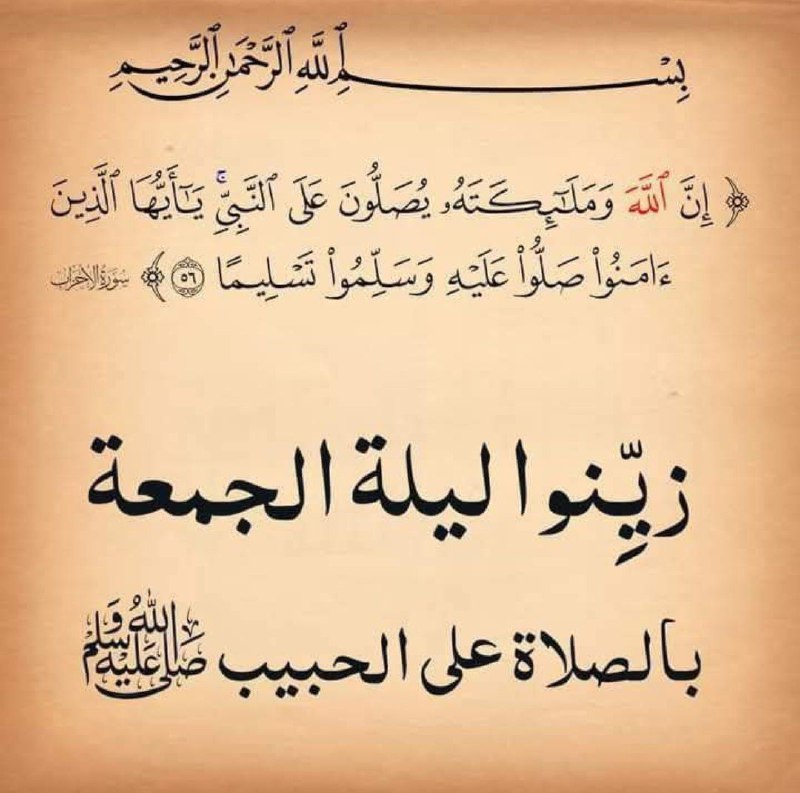 بِسْمِ ٱللَّهِ ٱلرَّحْمَٰنِ ٱلرَّحِيمِ
﴿ إِنَّ ٱللَّهَ وَمَلَٰٓئِكَتَهُۥ يُصَلُّونَ عَلَى ٱلنَّبِيِّۚ يَٰٓأَيُّهَا ٱلَّذِينَ
ءَامَنُوا۟ صَلُّوا۟ عَلَيْهِ وَسَلِّمُوا۟ تَسْلِيمًا ٥٦ ﴾ سُورَةُ الأَحْزَاب
زيِّنوا ليلة الجمعة
بالصلاة على الحبيب ﷺ